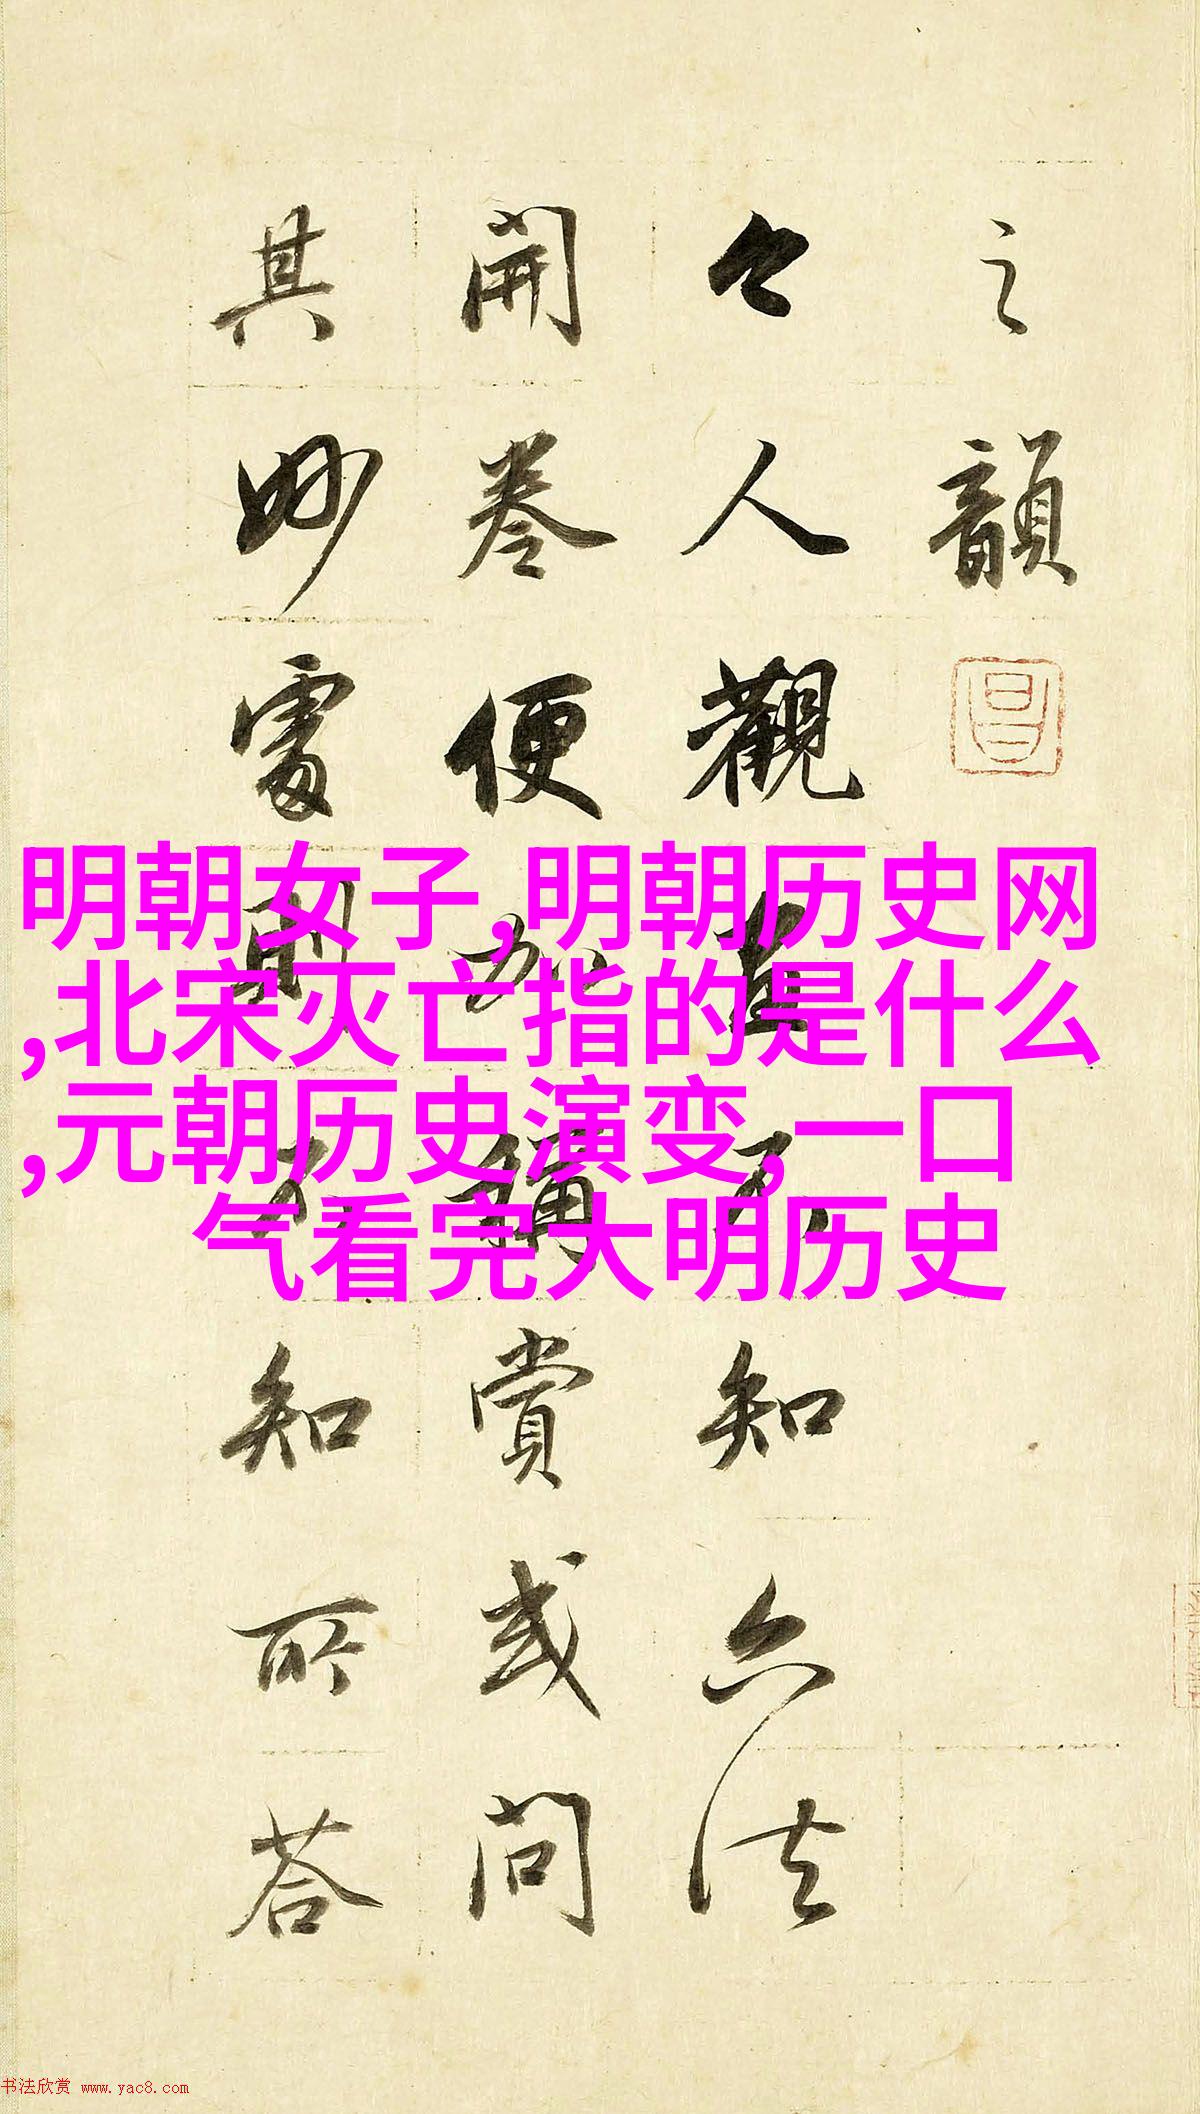 之韻
今人觀畫不知六法
開卷便加稱賞或問
其妙處則不知所答
明朝女子,明朝历史网
,北宋灭亡指的是什么
,元朝历史演变,一口
气看完大明历史
书法欣赏 www.yac8.com